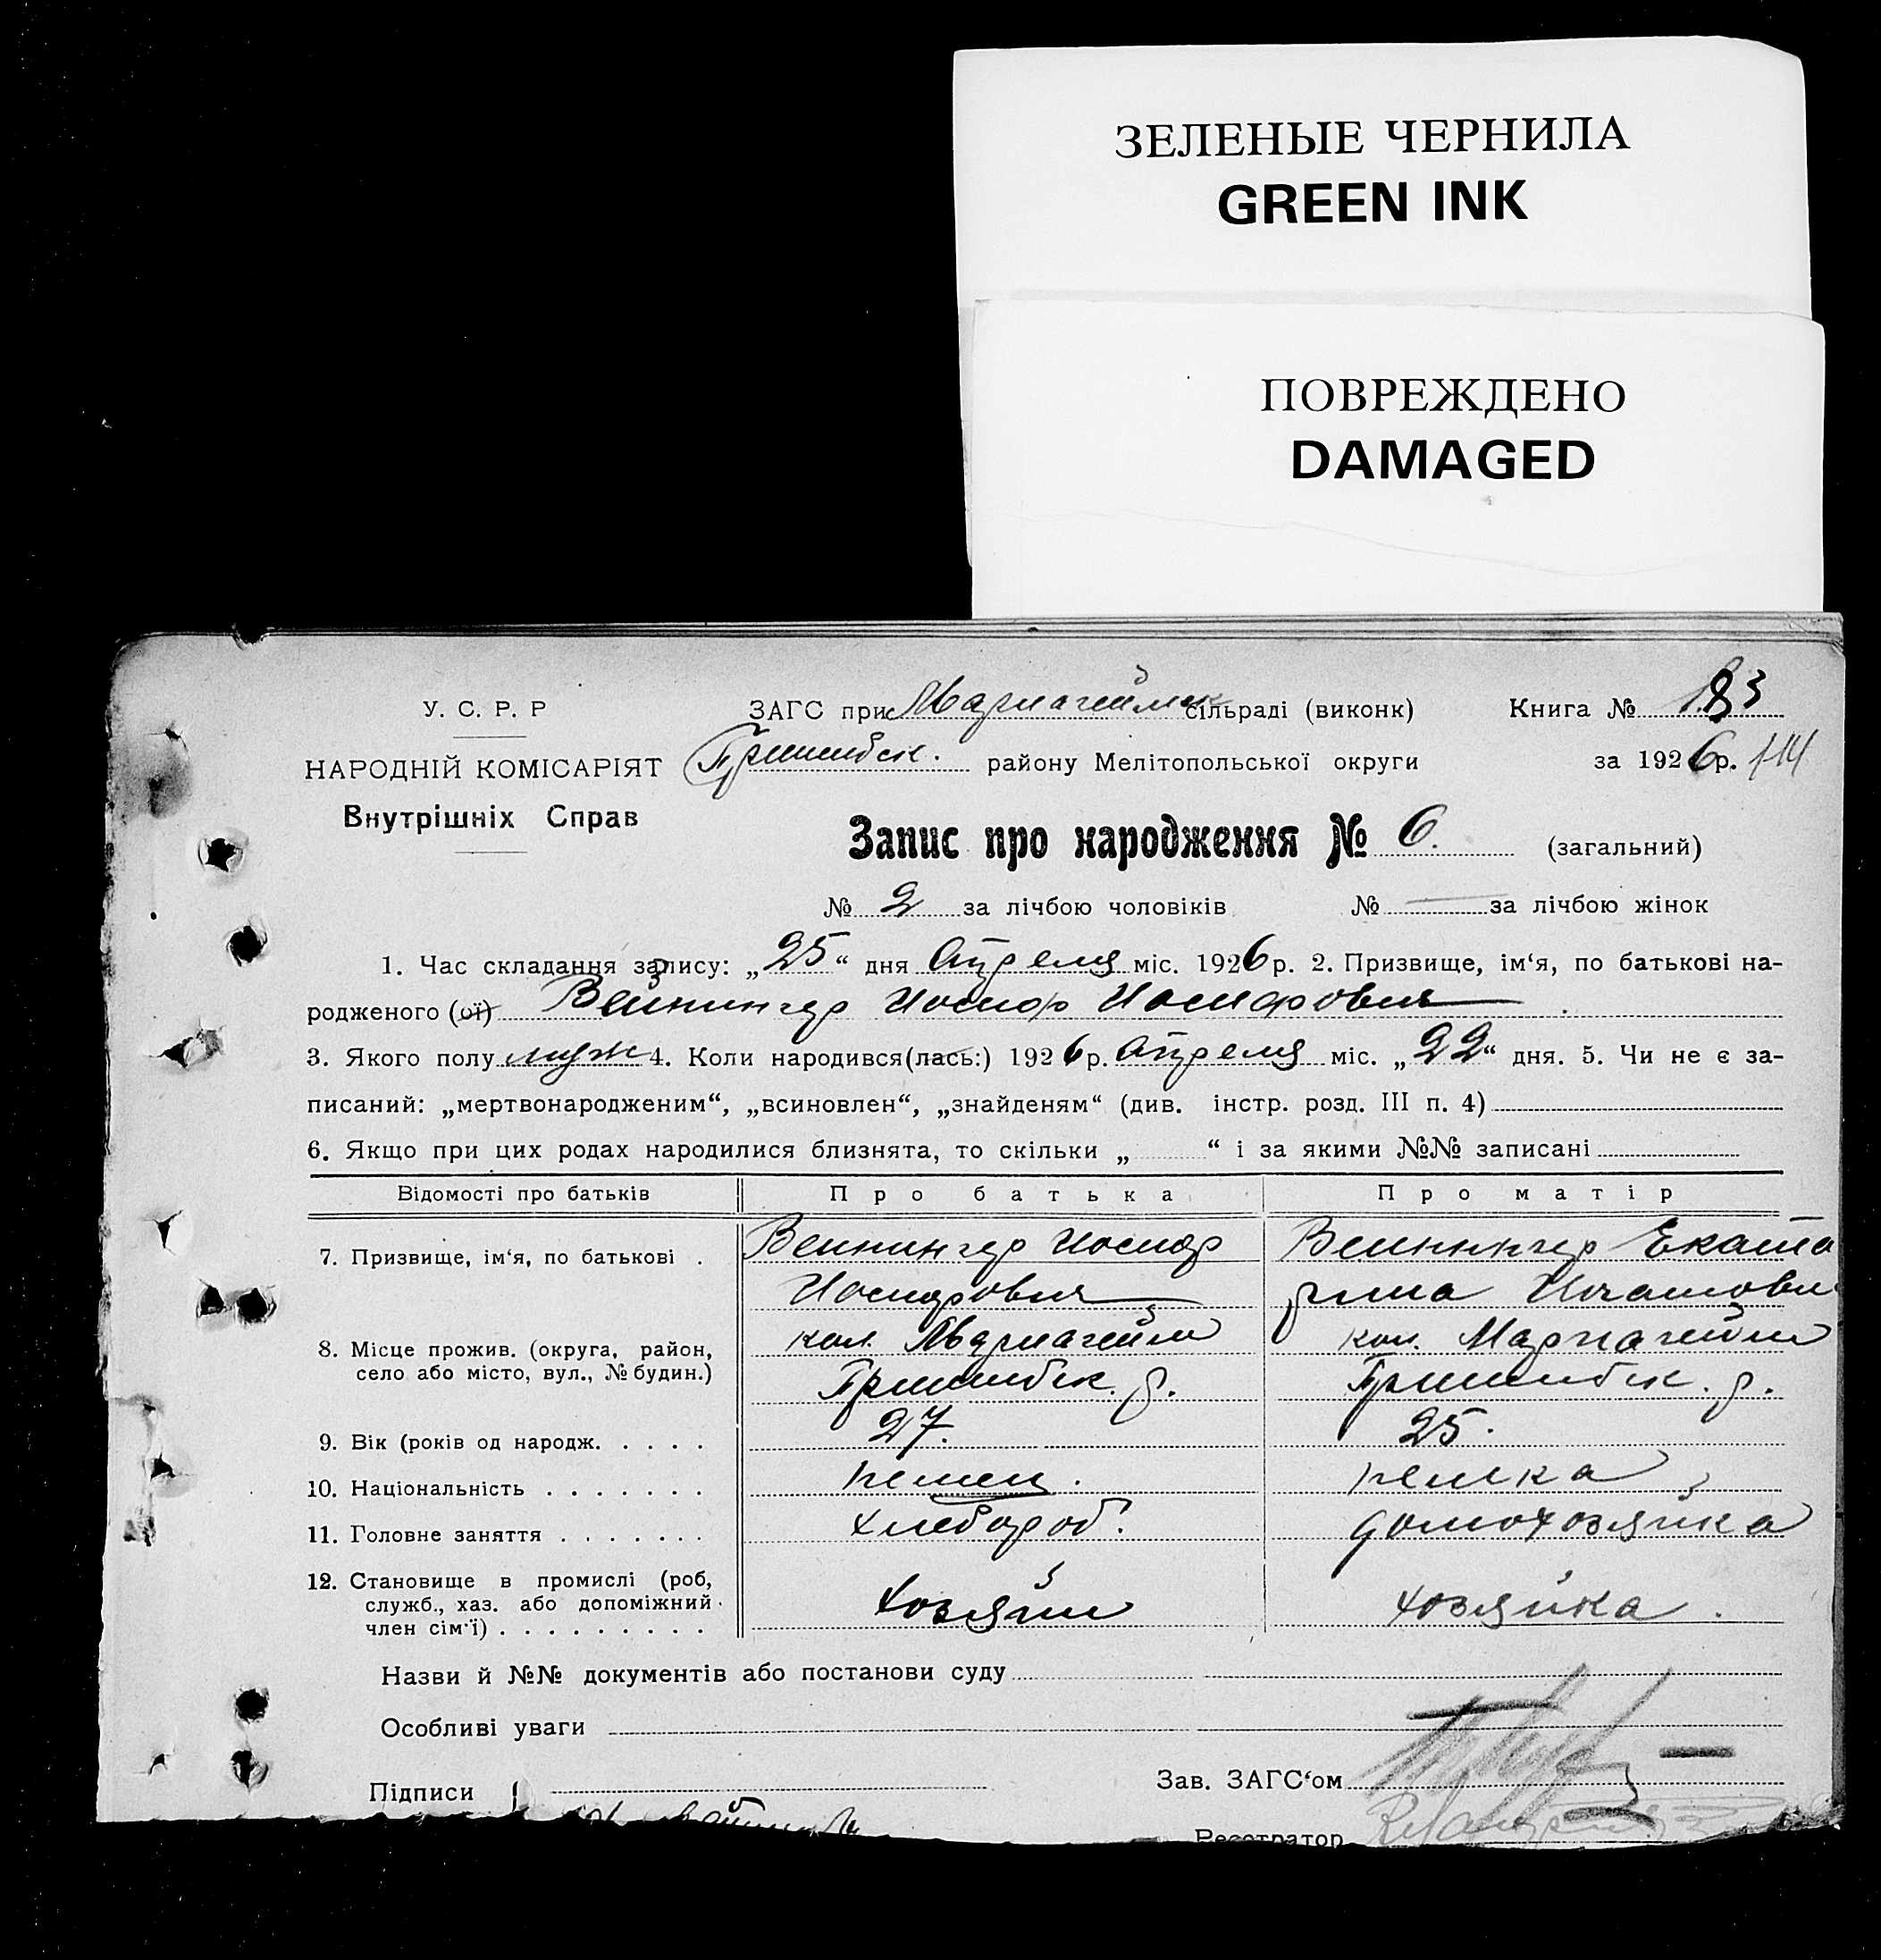 ЗЕЛЕНЫЕ ЧЕРНИЛА
GREEN INK
ПОВРЕЖДЕНО
DAMAGED
У. С. Р. Р
НАРОДНІЙ КОМІСАРІЯТ
Внутрішніх Справ
ЗАГС при Мариагеймск сільраді (виконк)
Пришибск. району Мелітопольської округи
Книга № 183
за 1926 р.
Запис про народження № 6. (загальний)
№ 2 за лічбою чоловіків № — за лічбою жінок
1. Час складання запису: „25“ дня Апреля міс. 1926 р. 2. Призвище, ім‘я, по батькові на-
родженого (ої) Вейнингер Иосиф Иосифович
3. Якого полу муж 4. Коли народився(лась:) 1926 р. Апреля міс. „22“ дня. 5. Чи не є за-
писаний: „мертвонародженим“, „всиновлен“, „знайденям“ (див. інстр. розд. III п. 4)
6. Якщо при цих родах народилися близнята, то скільки „ “ і за якими №№ записані
Відомості про батьків Про батька Про матір
7. Призвище, ім‘я, по батькові . Веинингер Иосиф Веинингер Екате
Иосифович рина Игнатовн
8. Місце прожив. (округа, район, кол. Мариагейм кол. Мариагейм
село або місто, вул., № будин.) Пришибск. р. Пришибск. р.
9. Вік (років од народж. . . . . 27. 25.
10. Національність . . . . . . . немец. немка
11. Головне заняття . . . . . . . хлебороб. домохозяйка
12. Становище в промислі (роб,
служб., хаз. або допоміжний хозяйн хозяйка.
член сім‘ї) . . . . . . . . .
Назви й №№ документів або постанови суду
Особливі уваги
Підписи
Зав. ЗАГС‘ом
Реєстратор